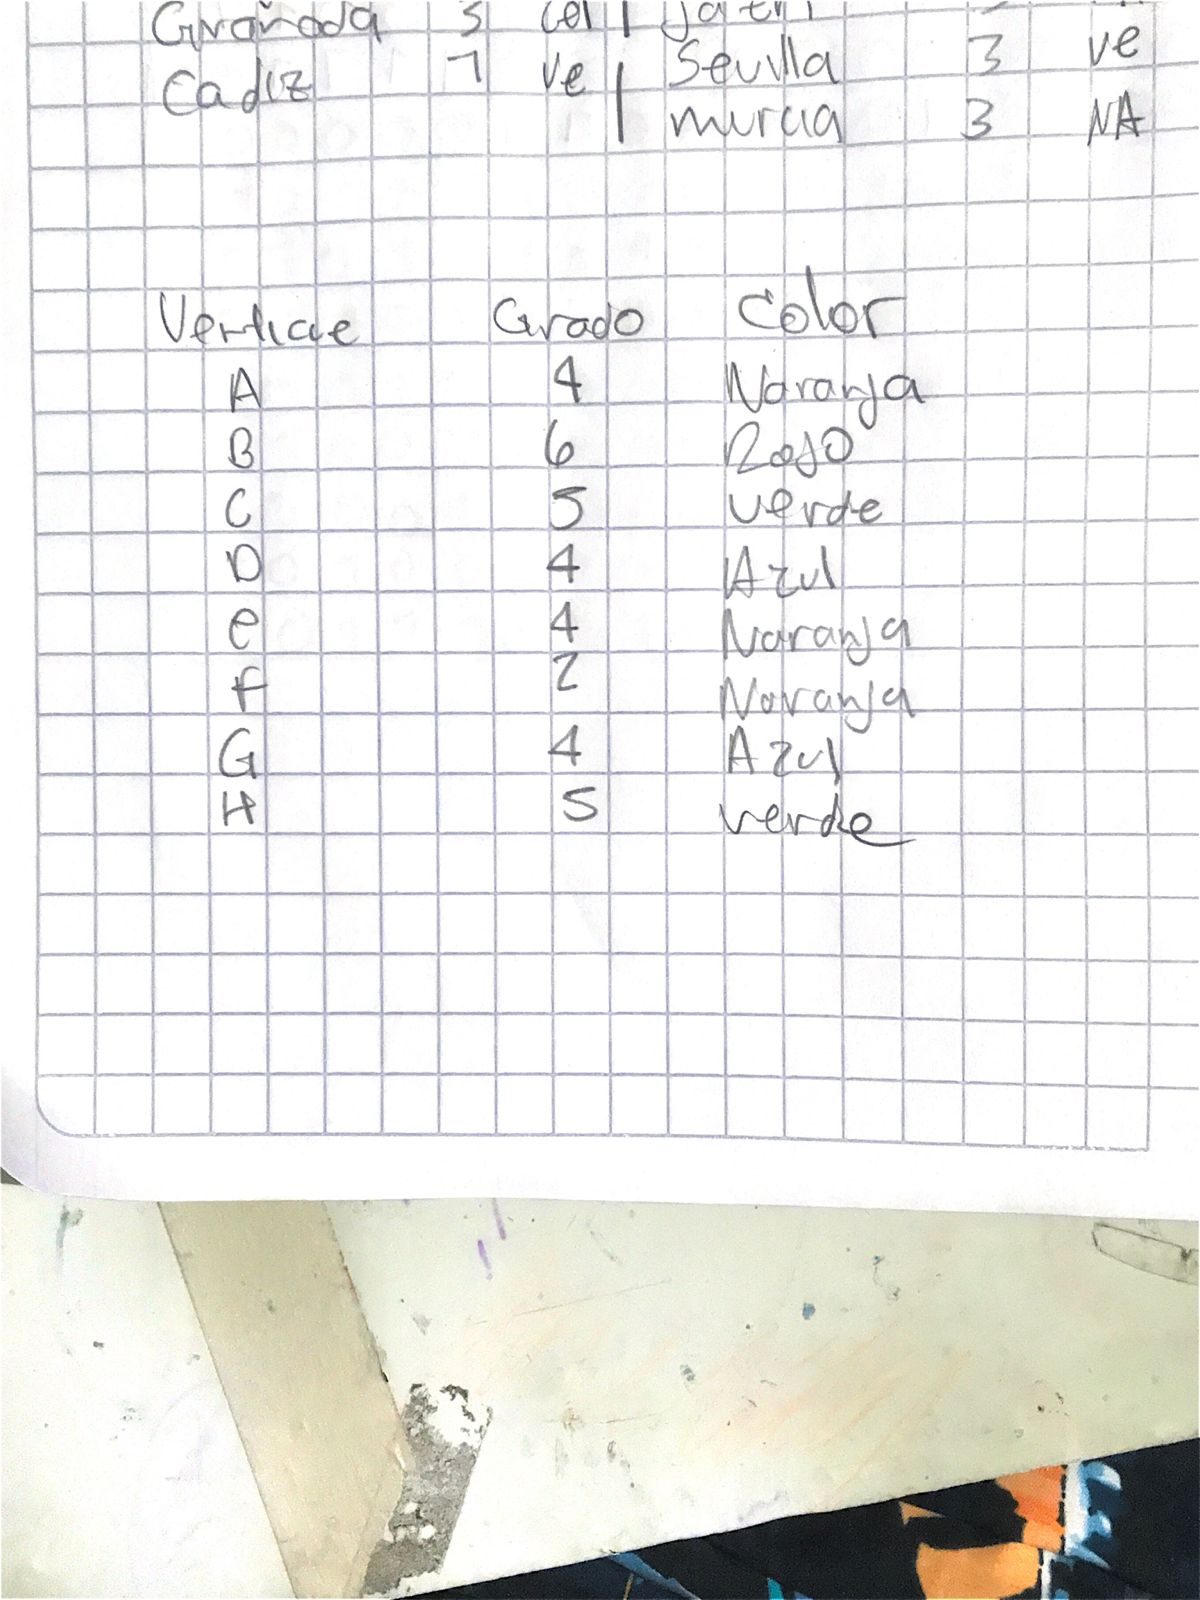 Granada 3 cel | Jaen
Cadiz 1 ve | Sevilla 3 ve
murcia 3 NA
Verticie Grado Color
A 4 Naranja
B 6 Rojo
C 5 verde
D 4 Azul
e 4 Naranja
f 2 Naranja
G 4 Azul
H 5 verde